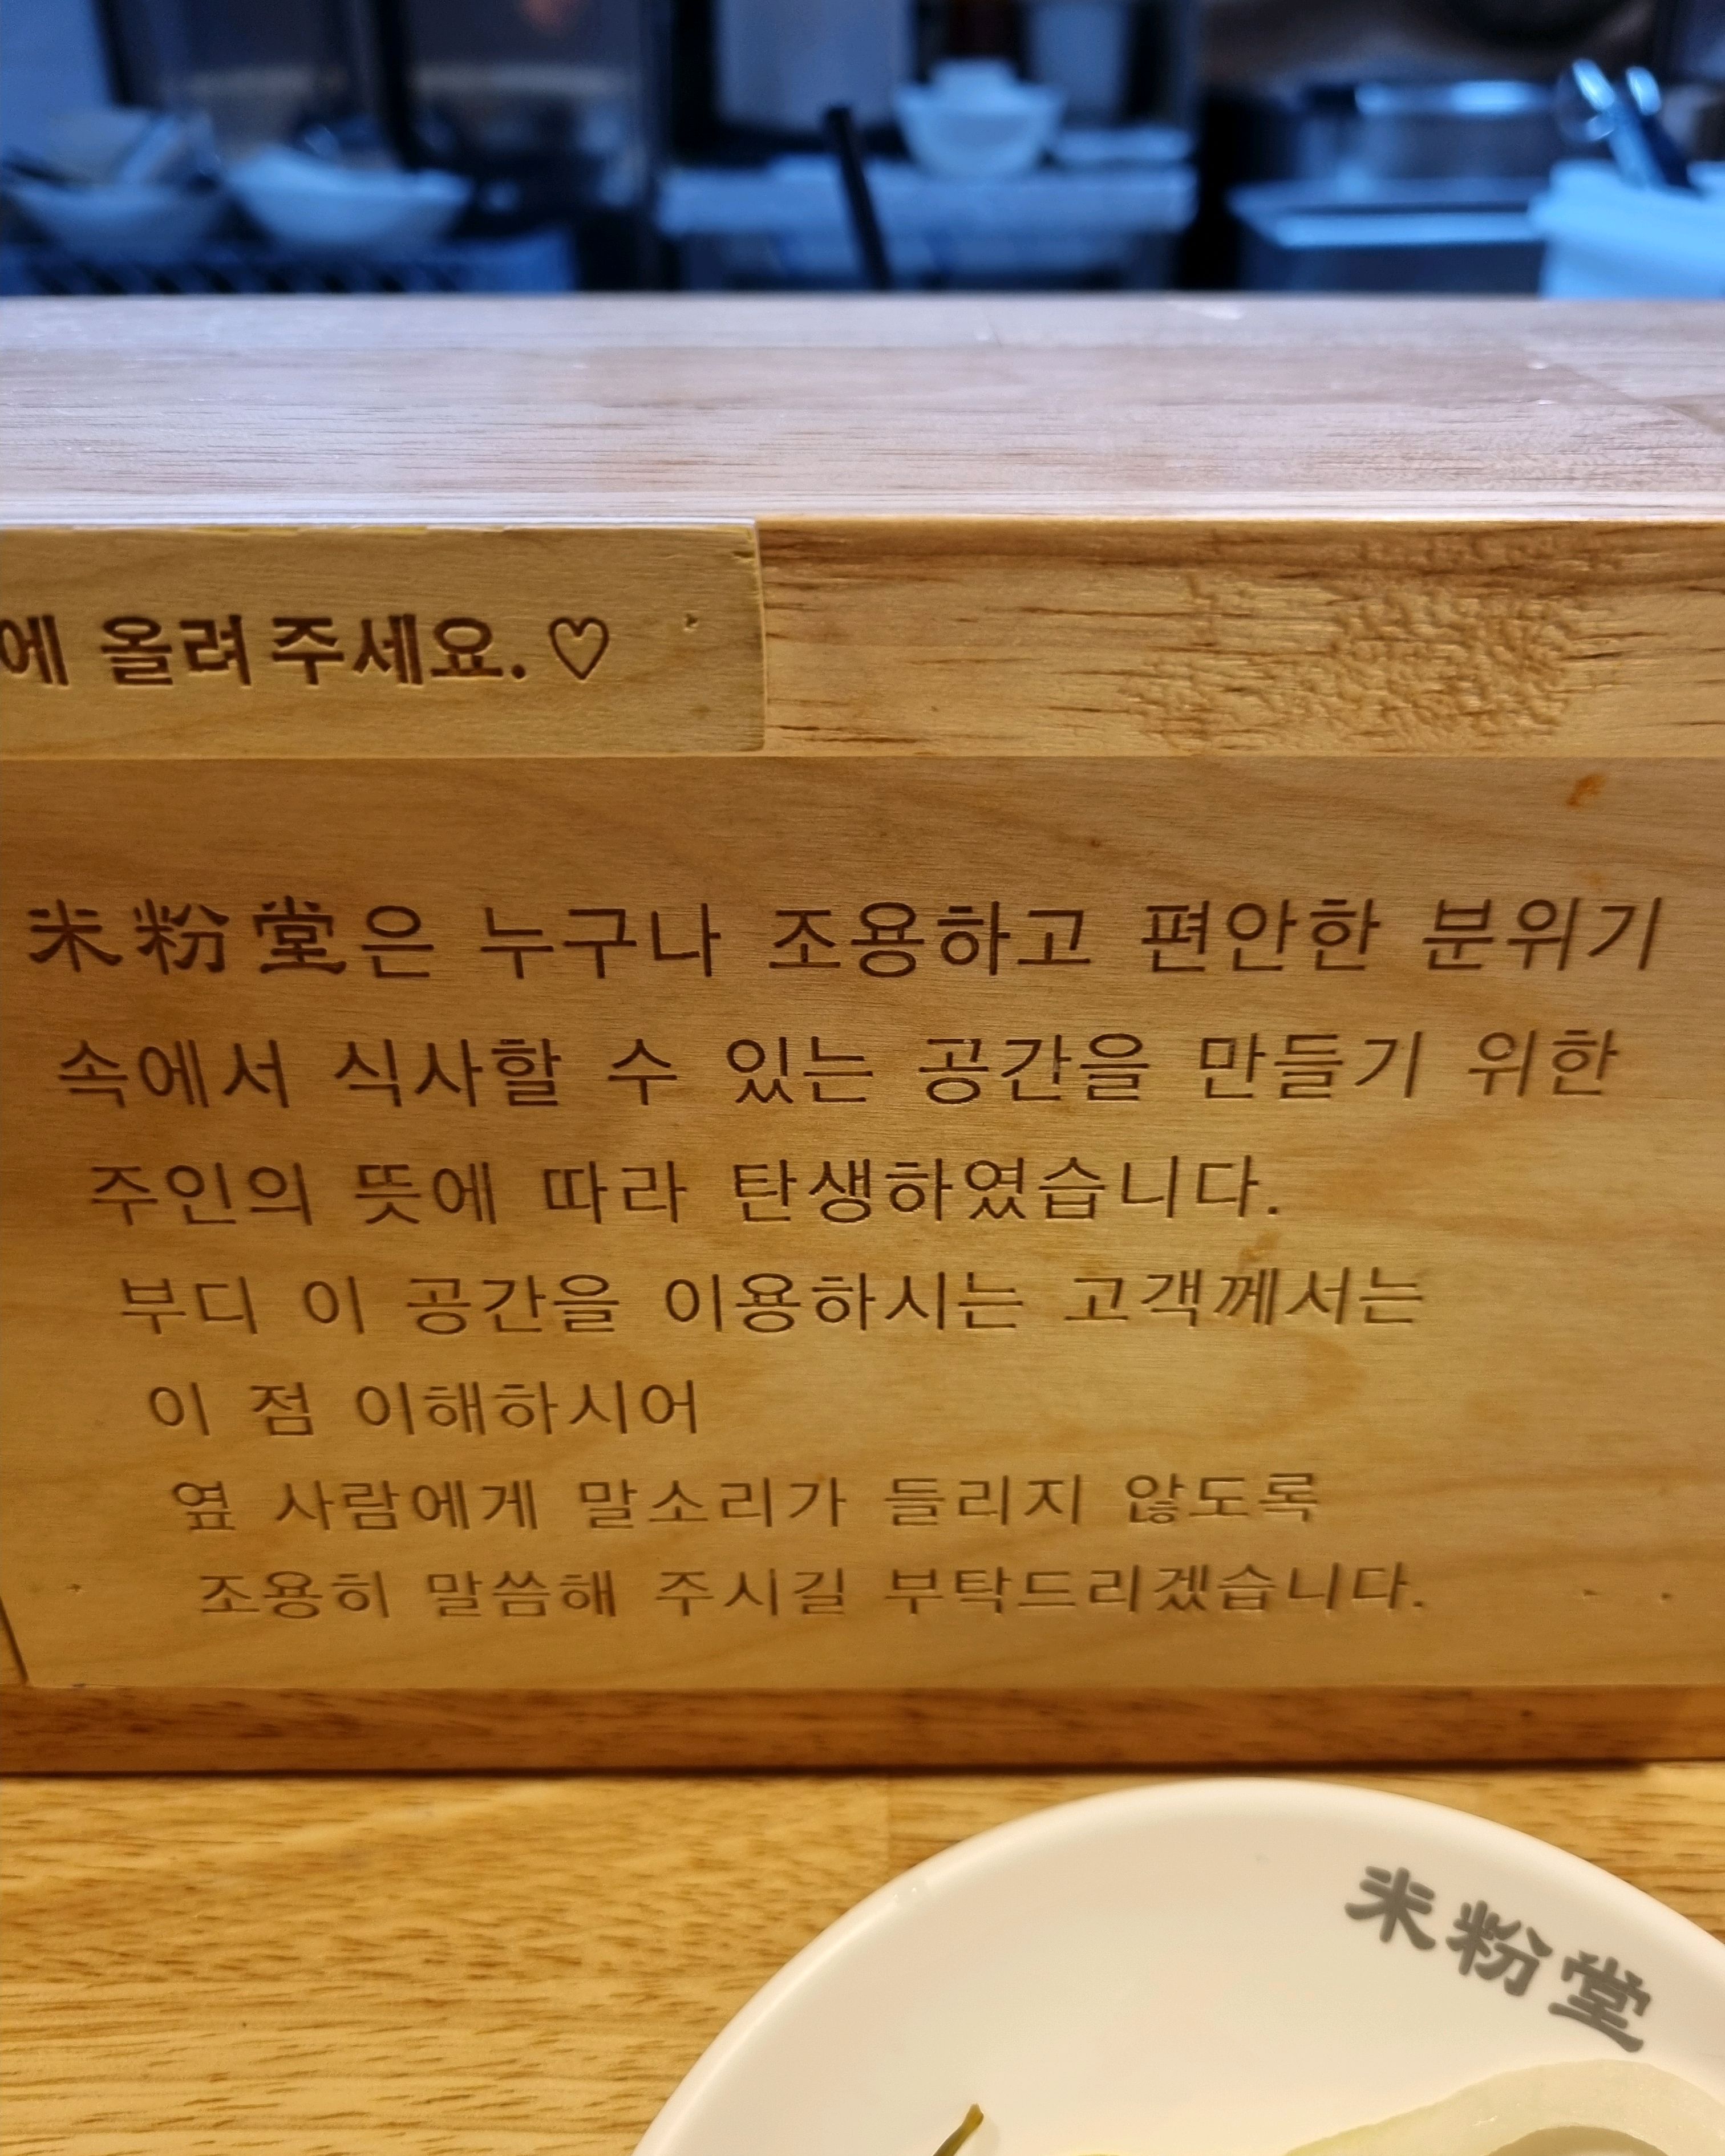 에 올려 주세요. ♡
米粉堂은 누구나 조용하고 편안한 분위기
속에서 식사할 수 있는 공간을 만들기 위한
주인의 뜻에 따라 탄생하였습니다.
부디 이 공간을 이용하시는 고객께서는
이 점 이해하시어
옆 사람에게 말소리가 들리지 않도록
조용히 말씀해 주시길 부탁드리겠습니다.
米粉堂